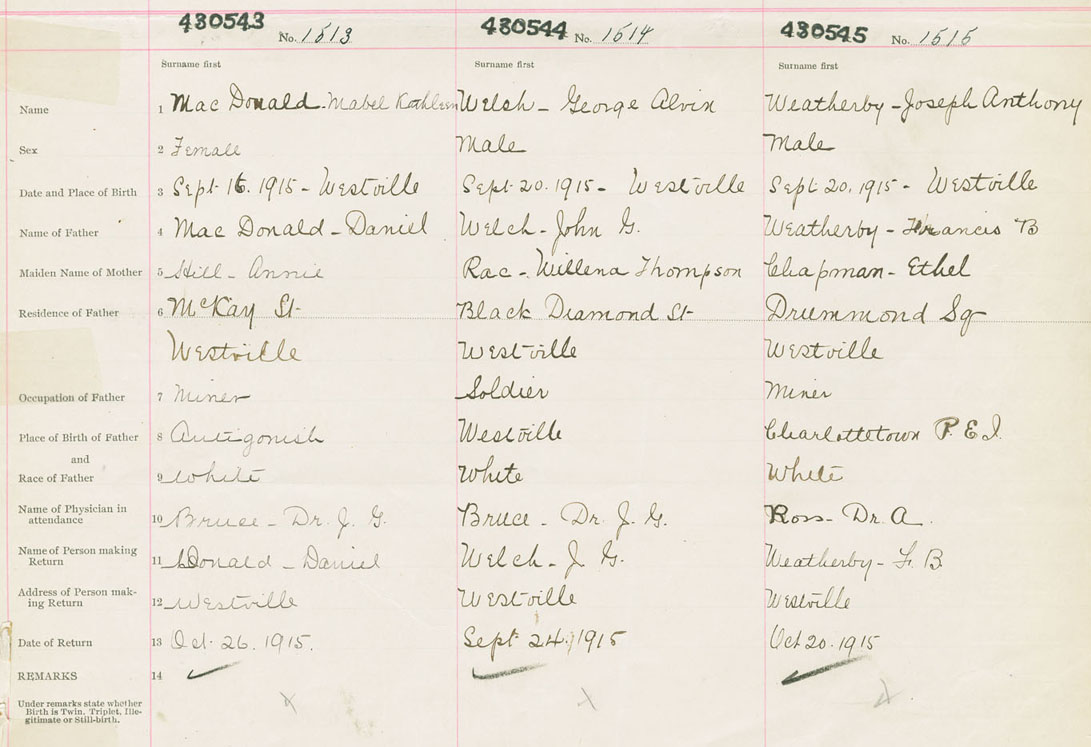 430543 No. 1513 430544 No. 1514 430545 No. 1515
Surname first Surname first Surname first
Name 1 Mac Donald. Mabel Kathleen Welsh - George Alvin Weatherby - Joseph Anthony
Sex 2 Female Male Male
Date and Place of Birth 3 Sept 16. 1915 - Westville Sept 20. 1915 - Westville Sept 20, 1915 - Westville
Name of Father 4 Mac Donald - Daniel Welch - John G. Weatherby - Francis B
Maiden Name of Mother 5 Hill - Annie Rac - Willena Thompson Chapman - Ethel
Residence of Father 6 McKay St- Black Diamond St- Drummond Sq
Westville Westville Westville
Occupation of Father 7 Miner Soldier Miner
Place of Birth of Father 8 Antigonish Westville Charlottetown P. E. I.
and
Race of Father 9 White White White
Name of Physician in
attendance 10 Bruce - Dr. J. G. Bruce - Dr. J. G. Ross - Dr. A.
Name of Person making
Return 11 Donald - Daniel Welch - J G. Weatherby - F. B
Address of Person mak-
ing Return 12 Westville Westville Westville
Date of Return 13 Oct. 26. 1915. Sept 24, 1915 Oct 20. 1915
REMARKS 14
Under remarks state whether
Birth is Twin, Triplet, Ille-
gitimate or Still-birth.